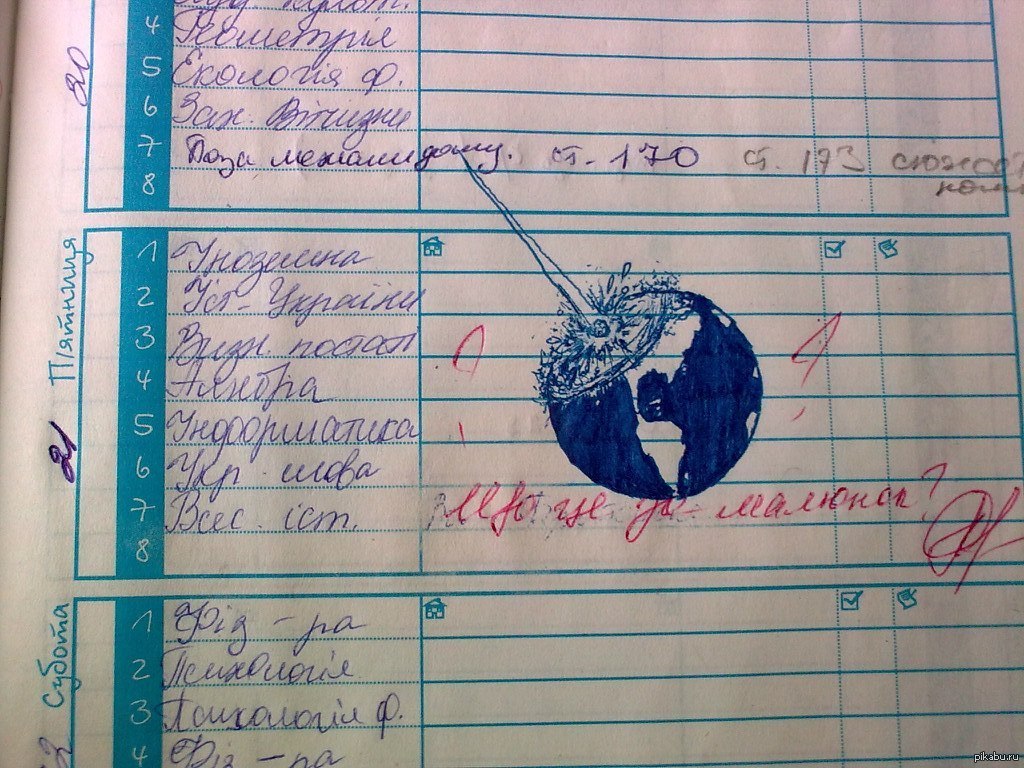 20
4 Геометрія
5 Екологія ф.
6 Зах. Вітчизни
7 Поза межами дому. ст. 170 ст. 173
8
П'ятниця
21
1 Іноземна
2 Іст. України
3 Видн. постаті
4 Алгебра
5 Інформатика
6 Укр. мова
7 Всес. іст.
8
Що це за малюнок?
Субота
1 Фіз-ра
2 Психологія
3 Психологія ф.
4 Фіз-ра
pikabu.ru